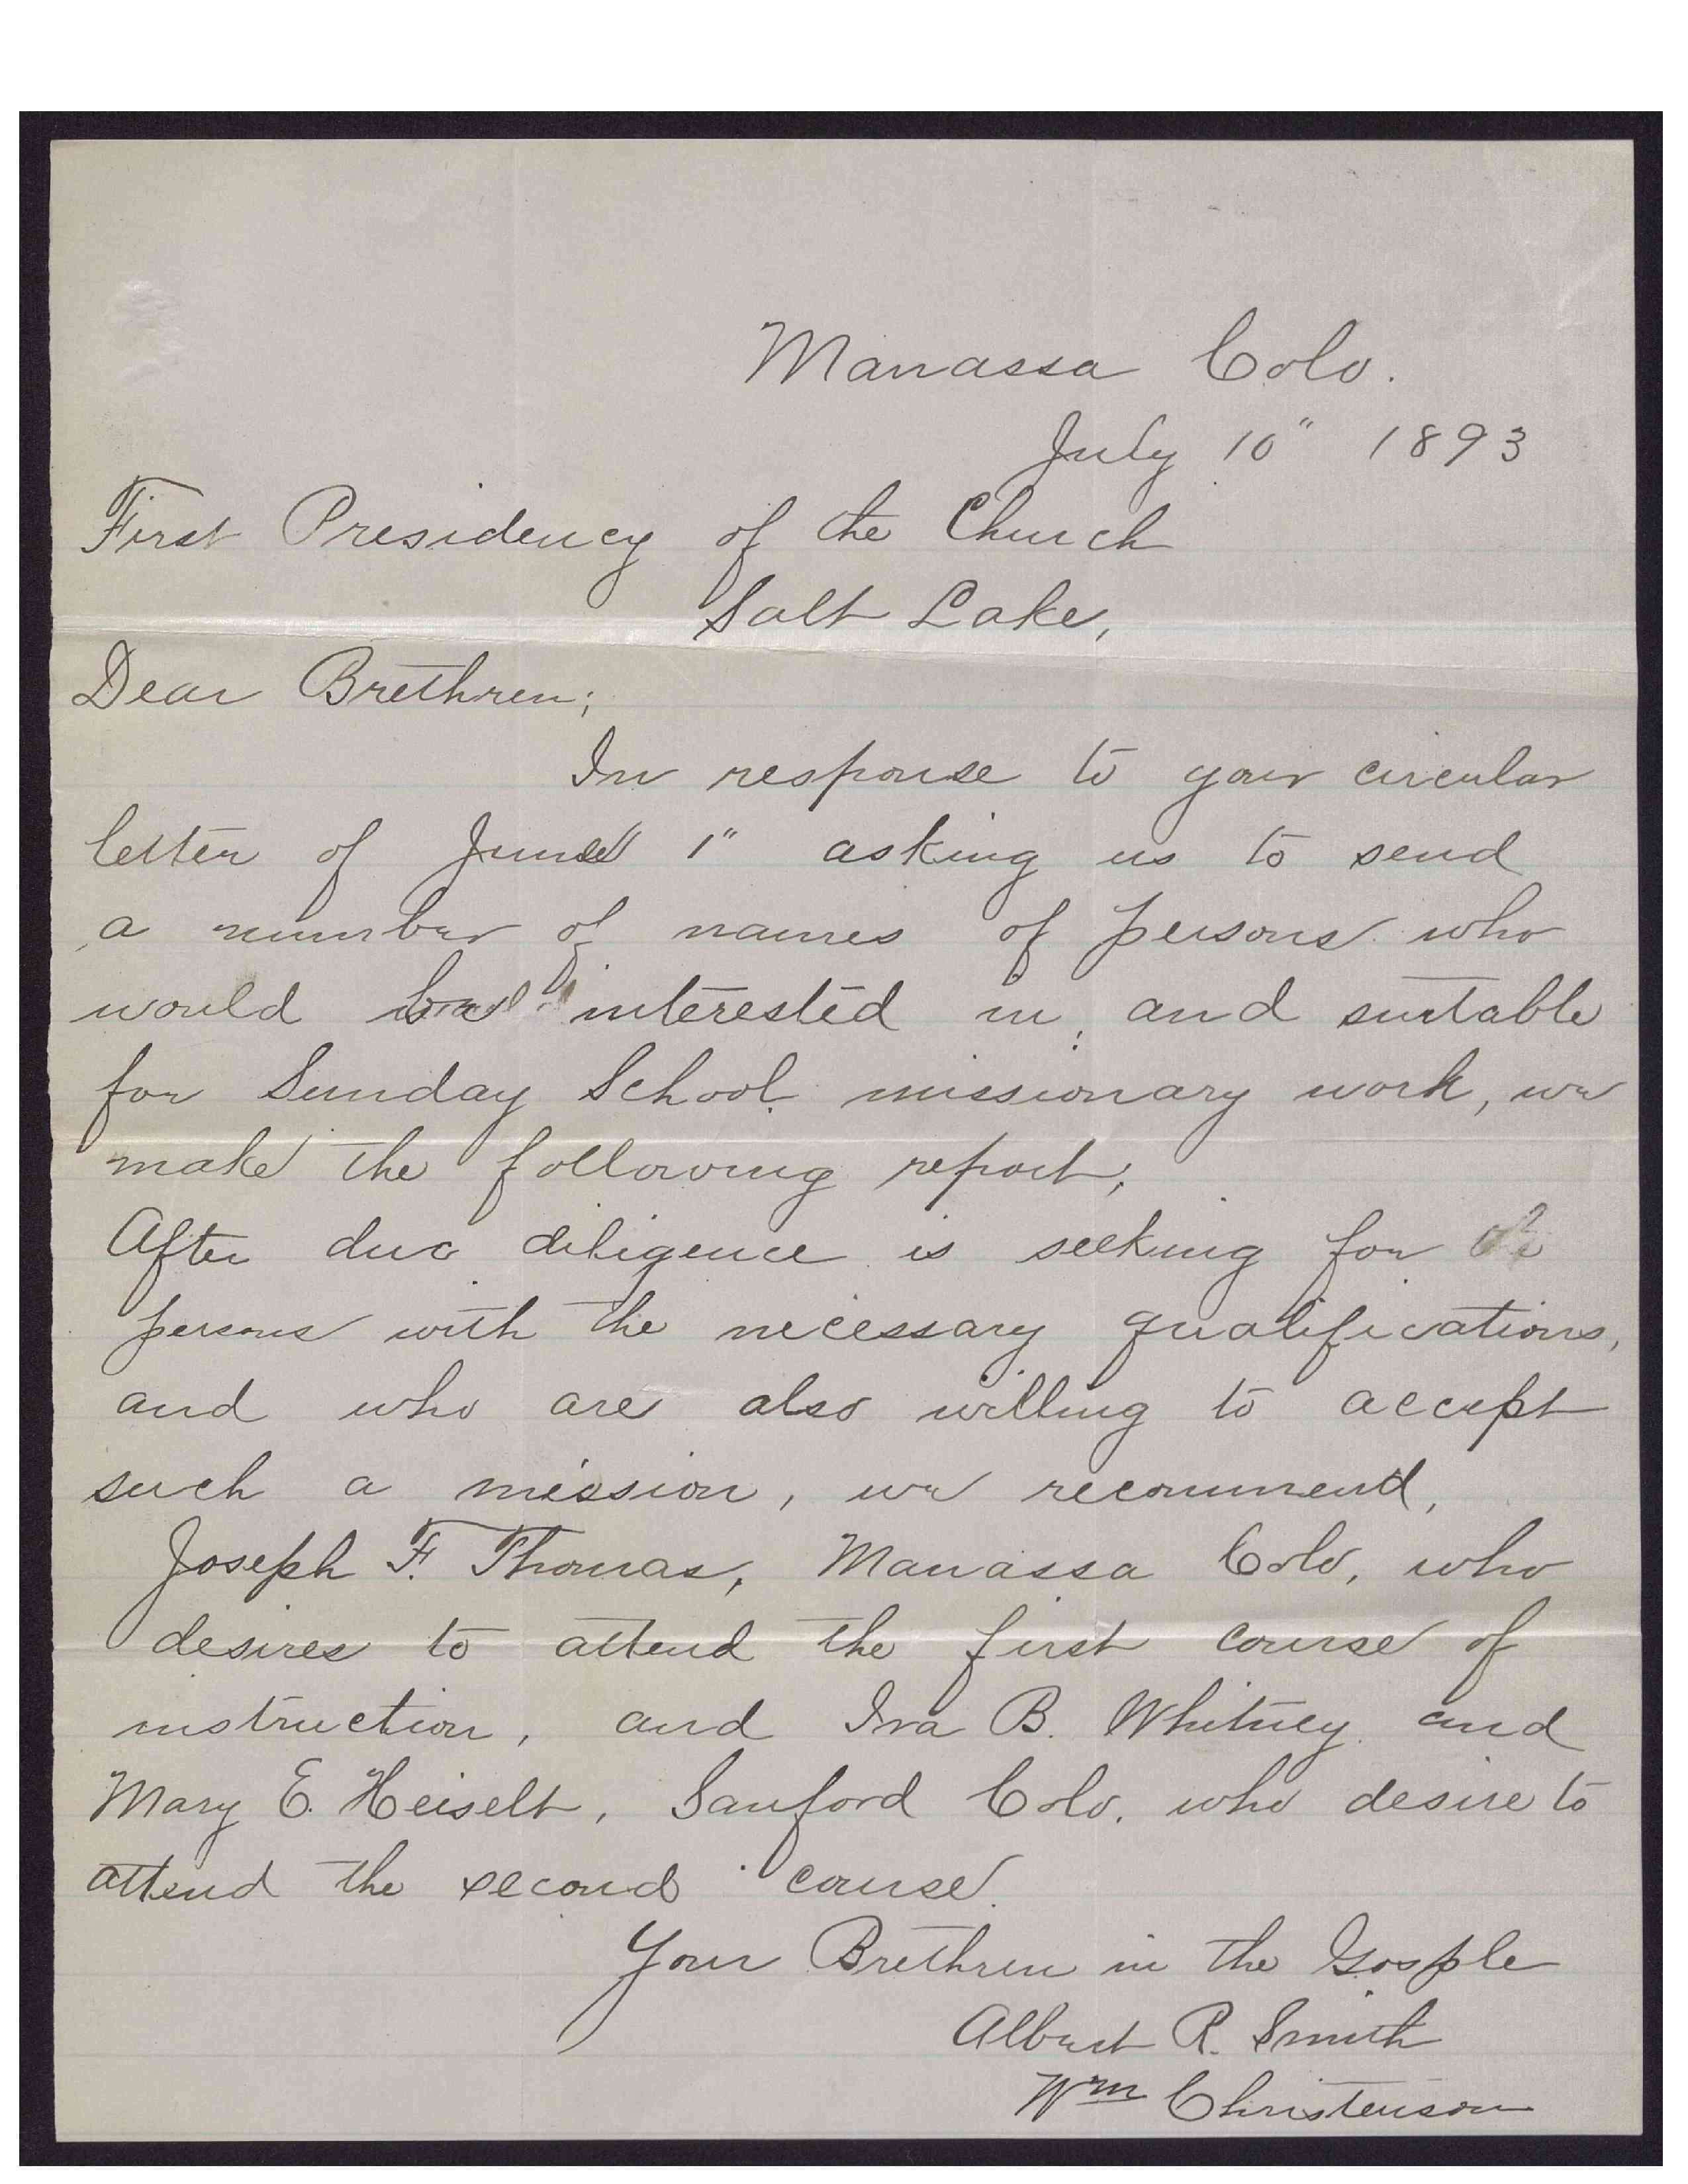 Manassa Colo.
July 10" 1893
First Presidency of the Church
Salt Lake,
Dear Brethren;
In response to your circular
letter of June 1" asking us to send
a number of names of persons who
would be interested in, and suitable
for Sunday School missionary work, we
make the following report;
After due diligence is seeking for
persons with the necessary qualifications,
and who are also willing to accept
such a mission, we recommend,
Joseph F. Thomas, Manassa Colo, who
desires to attend the first course of
instruction, and Ira B. Whitney and
Mary E. Heiselt, Sanford Colo. who desire to
attend the second course.
Your Brethren in the Gosple
Albert R. Smith
Wm Christenson